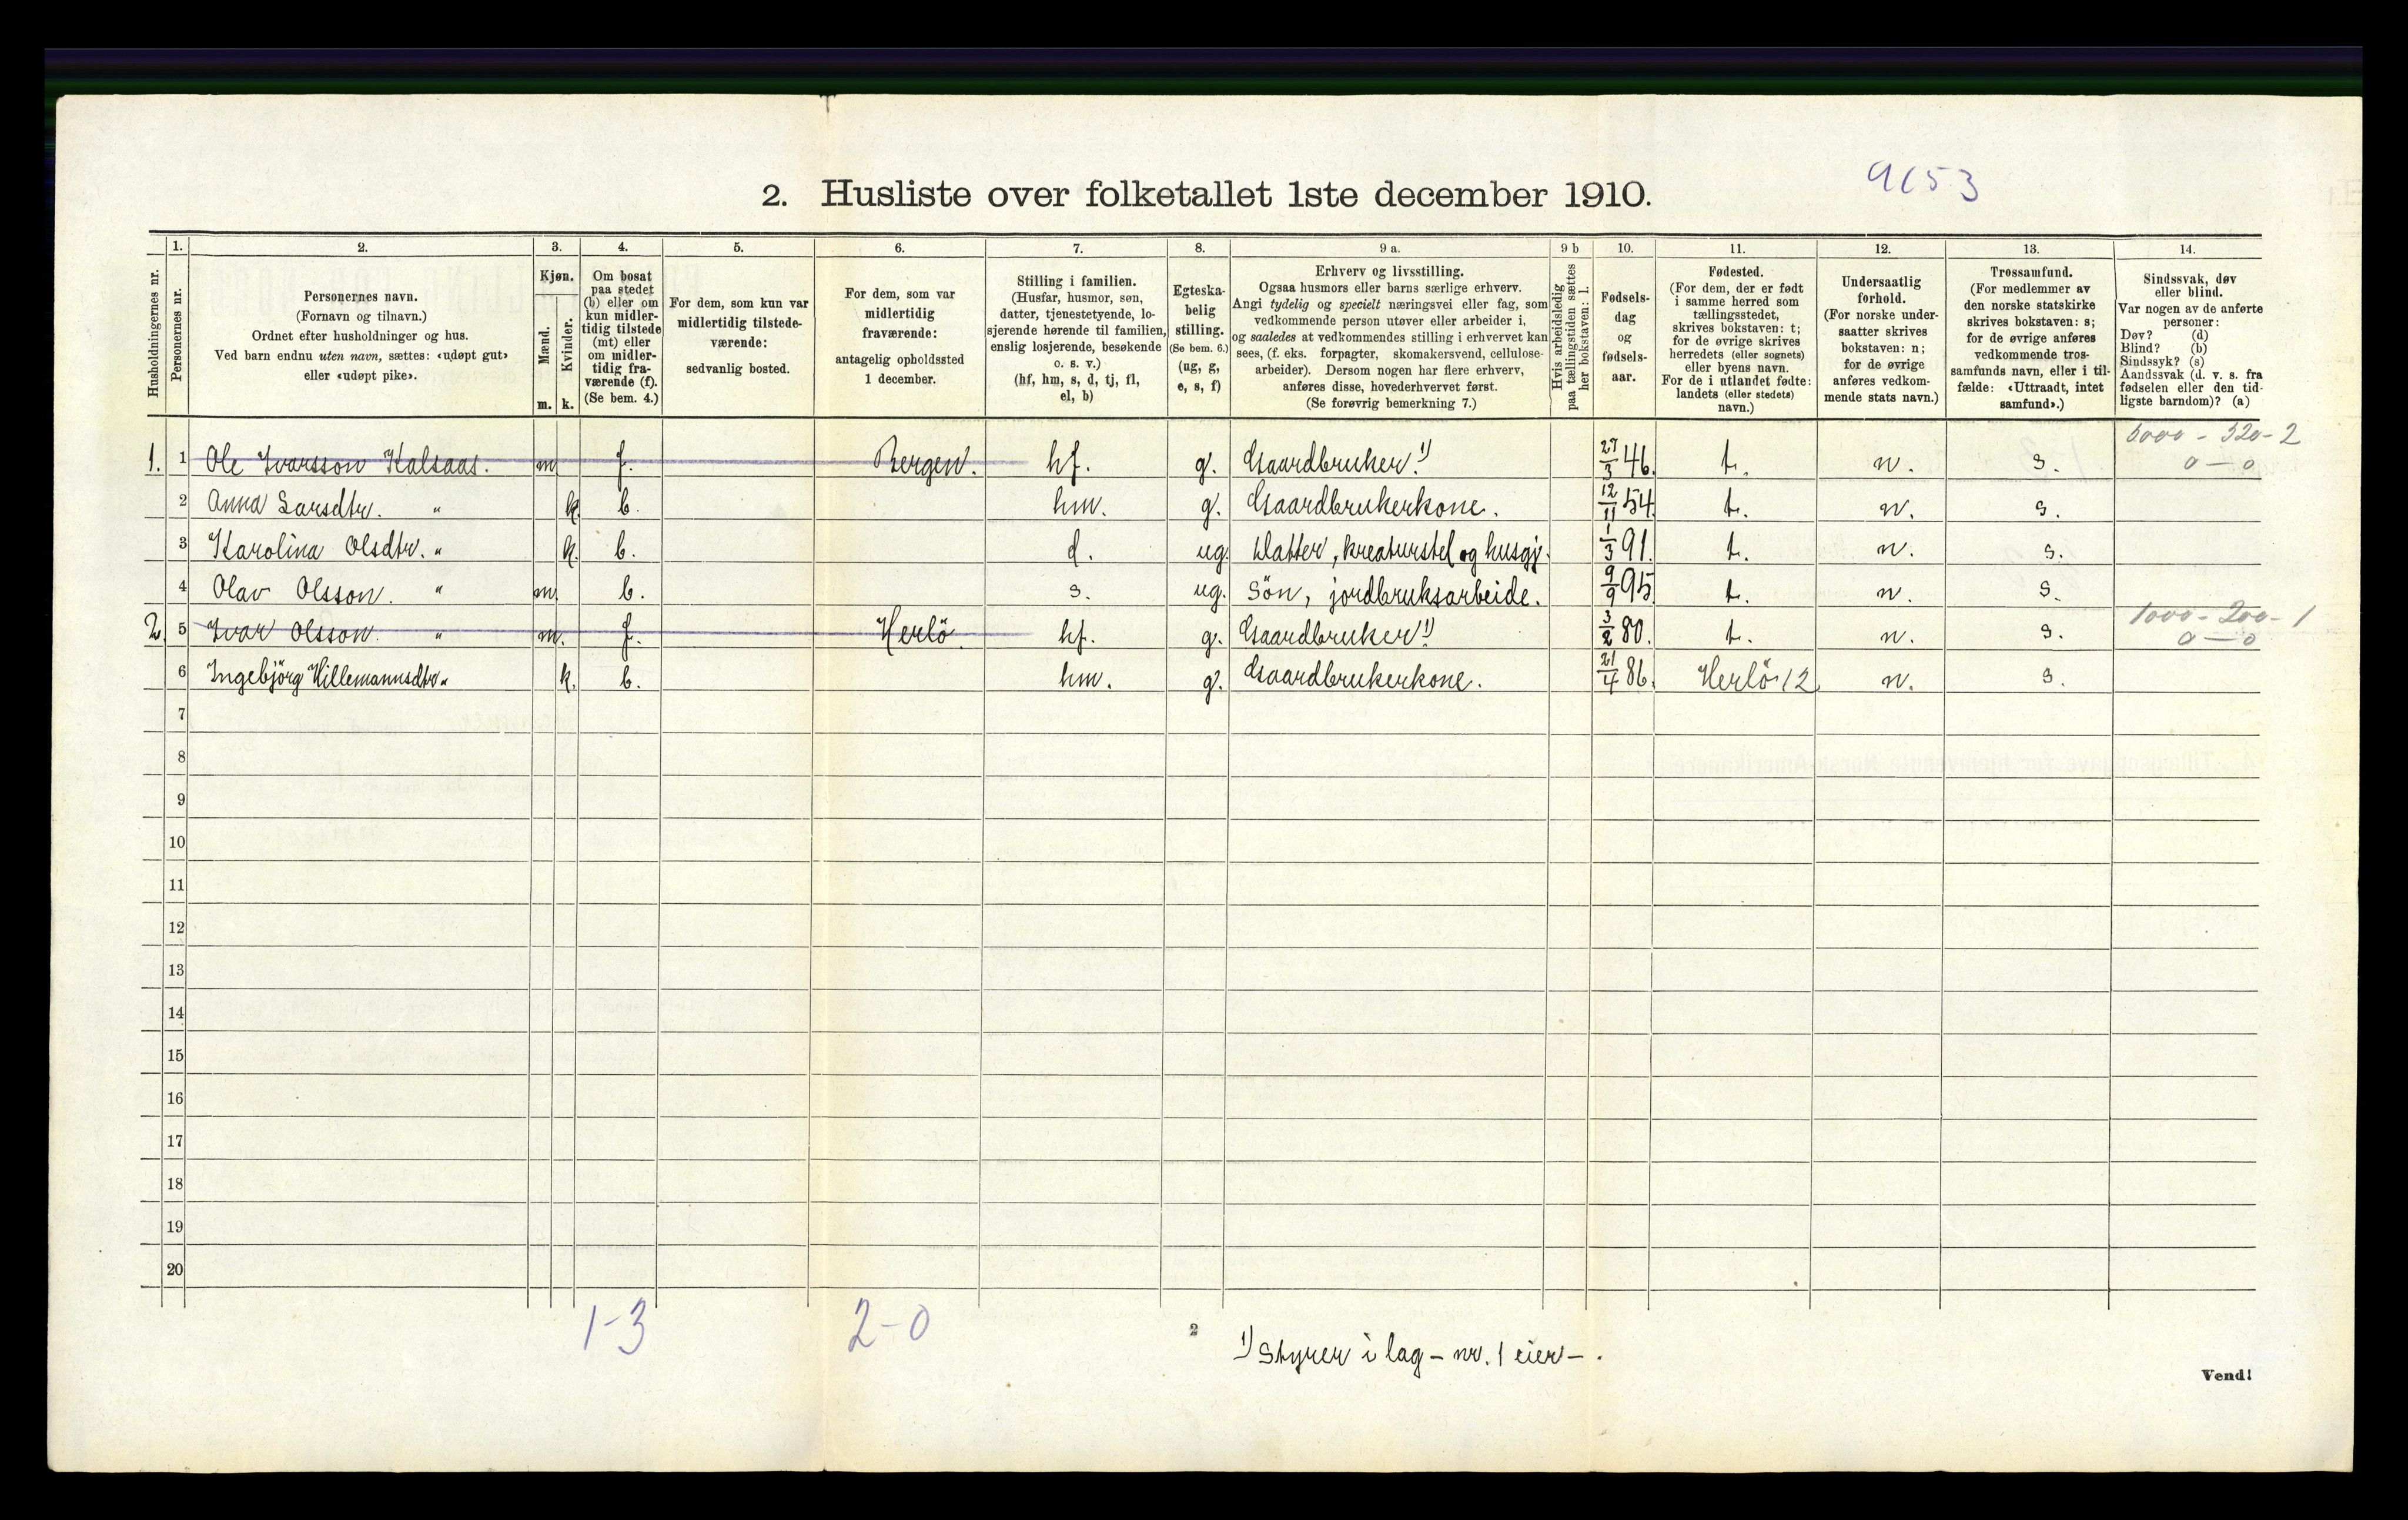 9153
2. Husliste over folketallet 1ste december 1910.
Husholdningernes nr.
1.
Personernes nr.
2.
Personernes navn.
(Fornavn og tilnavn.)
Ordnet efter husholdninger og hus.
Ved barn endnu uten navn, sættes: «udøpt gut»
eller «udøpt pike».
3.
Kjøn.
Mænd.
Kvinder.
m. k.
4.
Om bosat
paa stedet
(b) eller om
kun midler-
tidig tilstede
(mt) eller
om midler-
tidig fra-
værende (f).
(Se bem. 4.)
5.
For dem, som kun var
midlertidig tilstede-
værende:
sedvanlig bosted.
6.
For dem, som var
midlertidig
fraværende:
antagelig opholdssted
1 december.
7.
Stilling i familien.
(Husfar, husmor, søn,
datter, tjenestetyende, lo-
sjerende hørende til familien,
enslig losjerende, besøkende
o. s. v.)
(hf, hm, s, d, tj, fl,
el, b)
8.
Egteska-
belig
stilling.
(Se bem. 6.)
(ug, g,
e, s, f)
9 a.
Erhverv og livsstilling.
Ogsaa husmors eller barns særlige erhverv.
Angi tydelig og specielt næringsvei eller fag, som
vedkommende person utøver eller arbeider i,
og saaledes at vedkommendes stilling i erhvervet kan
sees, (f. eks. forpagter, skomakersvend, cellulose-
arbeider). Dersom nogen har flere erhverv,
anføres disse, hovederhvervet først.
(Se forøvrig bemerkning 7.)
9 b
Hvis arbeidsledig
paa tællingstiden sættes
her bokstaven: l.
10.
Fødsels-
dag
og
fødsels-
aar.
11.
Fødested.
(For dem, der er født
i samme herred som
tællingsstedet,
skrives bokstaven: t;
for de øvrige skrives
herredets (eller sognets)
eller byens navn.
For de i utlandet fødte:
landets (eller stedets)
navn.)
12.
Undersaatlig
forhold.
(For norske under-
saatter skrives
bokstaven: n;
for de øvrige
anføres vedkom-
mende stats navn.)
13.
Trossamfund.
(For medlemmer av
den norske statskirke
skrives bokstaven: s;
for de øvrige anføres
vedkommende tros-
samfunds navn, eller i til-
fælde: «Uttraadt, intet
samfund».)
14.
Sindssvak, døv
eller blind.
Var nogen av de anførte
personer:
Døv? (d)
Blind? (b)
Sindssyk? (s)
Aandssvak (d. v. s. fra
fødselen eller den tid-
ligste barndom)? (a)
1. 1 Ole Ivarsson Kalsaas. m f. Bergen. hf. g. Gaardbruker.1) 27/3 46. t. n. s. 6000 - 320 - 2
0 — 0
2 Anna Larsdtr. " k. b. hm. g. Gaardbrukerkone. 12/11 54. t. n. s.
3 Karolina Olsdtr. " k. b. d. ug. Datter, kreaturstel og husgj. 1/3 91. t. n. s.
4 Olav Olsson. " m. b. s. ug. Sön, jordbruksarbeide. 9/9 95 t. n. s.
2. 5 Ivar Olsson. " m. f. Herlö. hf. g. Gaardbruker1) 3/2 80. t. n. s. 1000 - 200 - 1
0 — 0
6 Ingebjörg Hillemannsdtr " k. b. hm. g. Gaardbrukerkone. 21/4 86. Herlö 12 n. s.
7
8
9
10
11
12
13
14
15
16
17
18
19
20
1-3 2-0
2
1) Styrer i lag - nr. 1 eier - .
Vend!